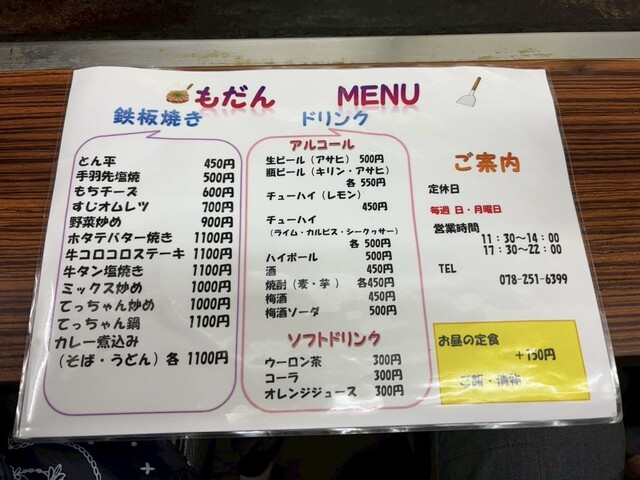 もだん MENU
鉄板焼き
とん平 450円
手羽先塩焼 500円
もちチーズ 600円
すじオムレツ 700円
野菜炒め 900円
ホタテバター焼き 1100円
牛コロコロステーキ 1100円
牛タン塩焼き 1100円
ミックス炒め 1000円
てっちゃん炒め 1000円
てっちゃん鍋 1100円
カレー煮込み
（そば・うどん）各 1100円
ドリンク
アルコール
生ビール（アサヒ） 500円
瓶ビール（キリン・アサヒ）
各 550円
チューハイ（レモン）
450円
チューハイ
（ライム・カルピス・シークヮサー）
各 500円
ハイボール 500円
酒 450円
焼酎（麦・芋） 各450円
梅酒 450円
梅酒ソーダ 500円
ソフトドリンク
ウーロン茶 300円
コーラ 300円
オレンジジュース 300円
ご案内
定休日
毎週 日・月曜日
営業時間
11：30～14：00
17：30～22：00
TEL
078-251-6399
お昼の定食
+150円
ご飯・漬物